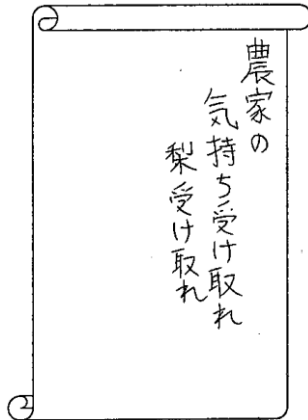 農家の
気持ち受け取れ
梨受け取れ